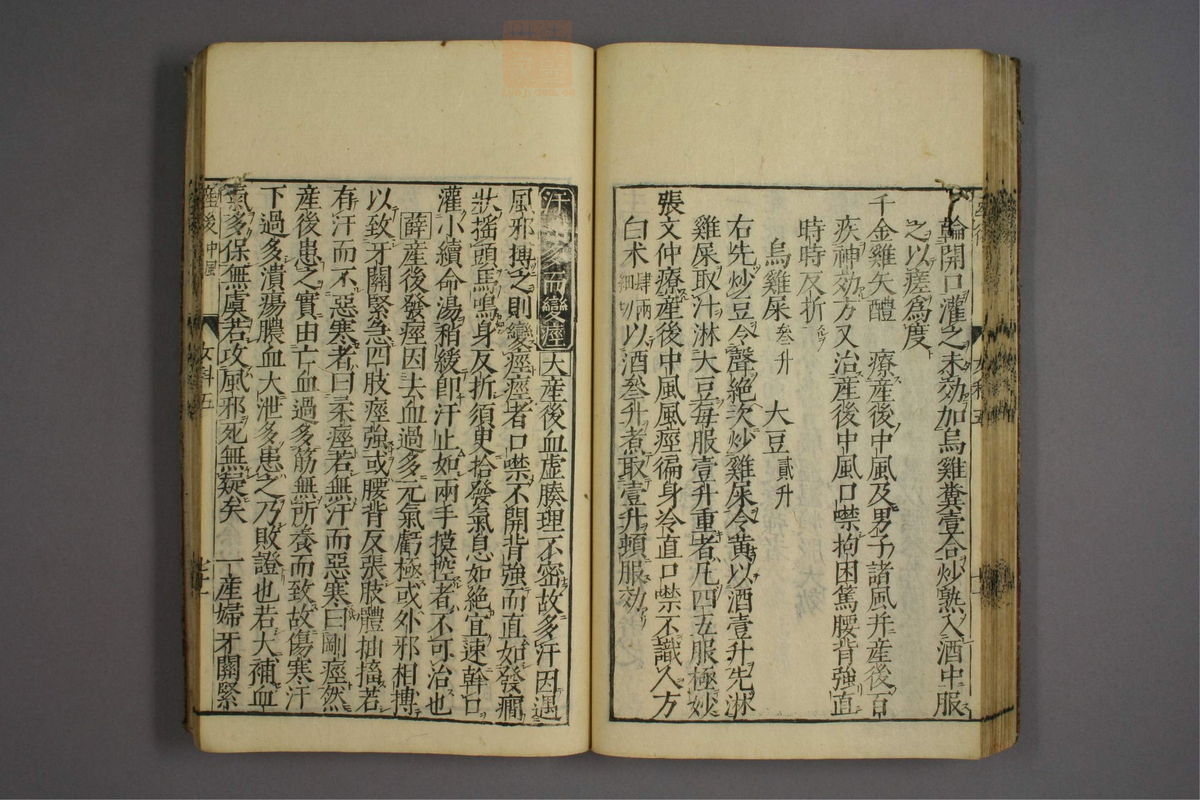 斡開口灌之未効加烏雞糞壹合炒熟入酒中服
之以瘥爲度
千金雞矢醴　療産後中風及男子諸風并産後百
疾神効方又治産後中風口噤拘困篤腰背強直
時時反折
烏雞屎叁升　大豆貳升
右先炒豆令聲絶次炒雞屎令黄以酒壹升先淋
雞屎取汁淋大豆每服壹升重者凡四五服極妙
張文仲療産後中風風痙徧身冷直口噤不識人方
白术肆兩細切以酒叁升煮取壹升頓服効
汗多而變痙　大産後血虛腠理不密故多汗因遇
風邪搏之則變痙痙者口噤不開背強而直如發癎
狀搖頭馬鳴身反折須臾拾發氣息如絶宜速斡口
灌小續命湯稍緩卽汗止如兩手摸控者不可治也
薛産後發痙因去血過多元氣虧極或外邪相搏
以致牙關緊急四肢痙強或腰背反張肢體抽搐若
有汗而不惡寒者曰柔痙若無汗而惡寒曰剛痙然
産後患之實由亡血過多筋無所養而致故傷寒汗
下過多潰瘍膿血大泄多患之乃敗證也若大補血
氣多保無虞若攻風邪死無疑矣　一産婦牙關緊
産後中風
女科五